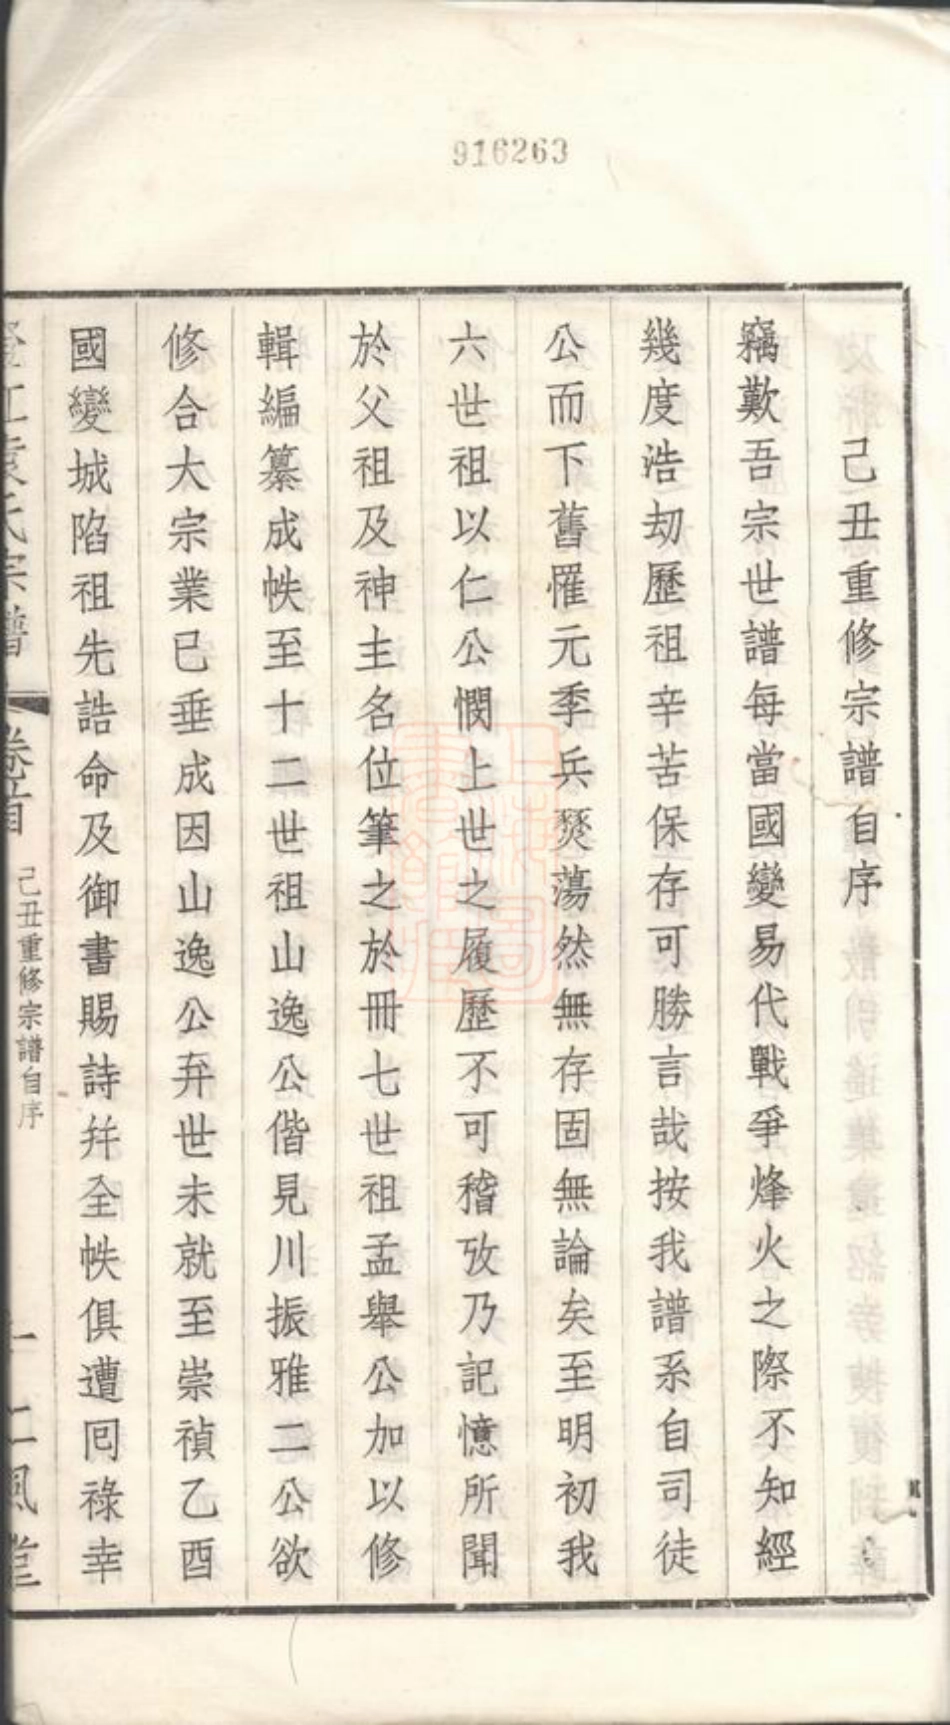 916263
己丑重修宗譜自序
竊歎吾宗世譜每當國變易代戰爭烽火之際不知經
幾度浩劫歷祖辛苦保存可勝言哉按我譜系自司徒
公而下舊罹元季兵燹蕩然無存固無論矣至明初我
六世祖以仁公憫上世之履歷不可稽攷乃記憶所聞
於父祖及神主名位筆之於冊七世祖孟舉公加以修
輯編纂成帙至十二世祖山逸公偕見川振雅二公欲
修合大宗業已垂成因山逸公弃世未就至崇禎乙酉
國變城陷祖先誥命及御書賜詩幷全帙俱遭囘祿幸
江袁氏宗譜 卷首 己丑重修宗譜自序 一 仁風堂